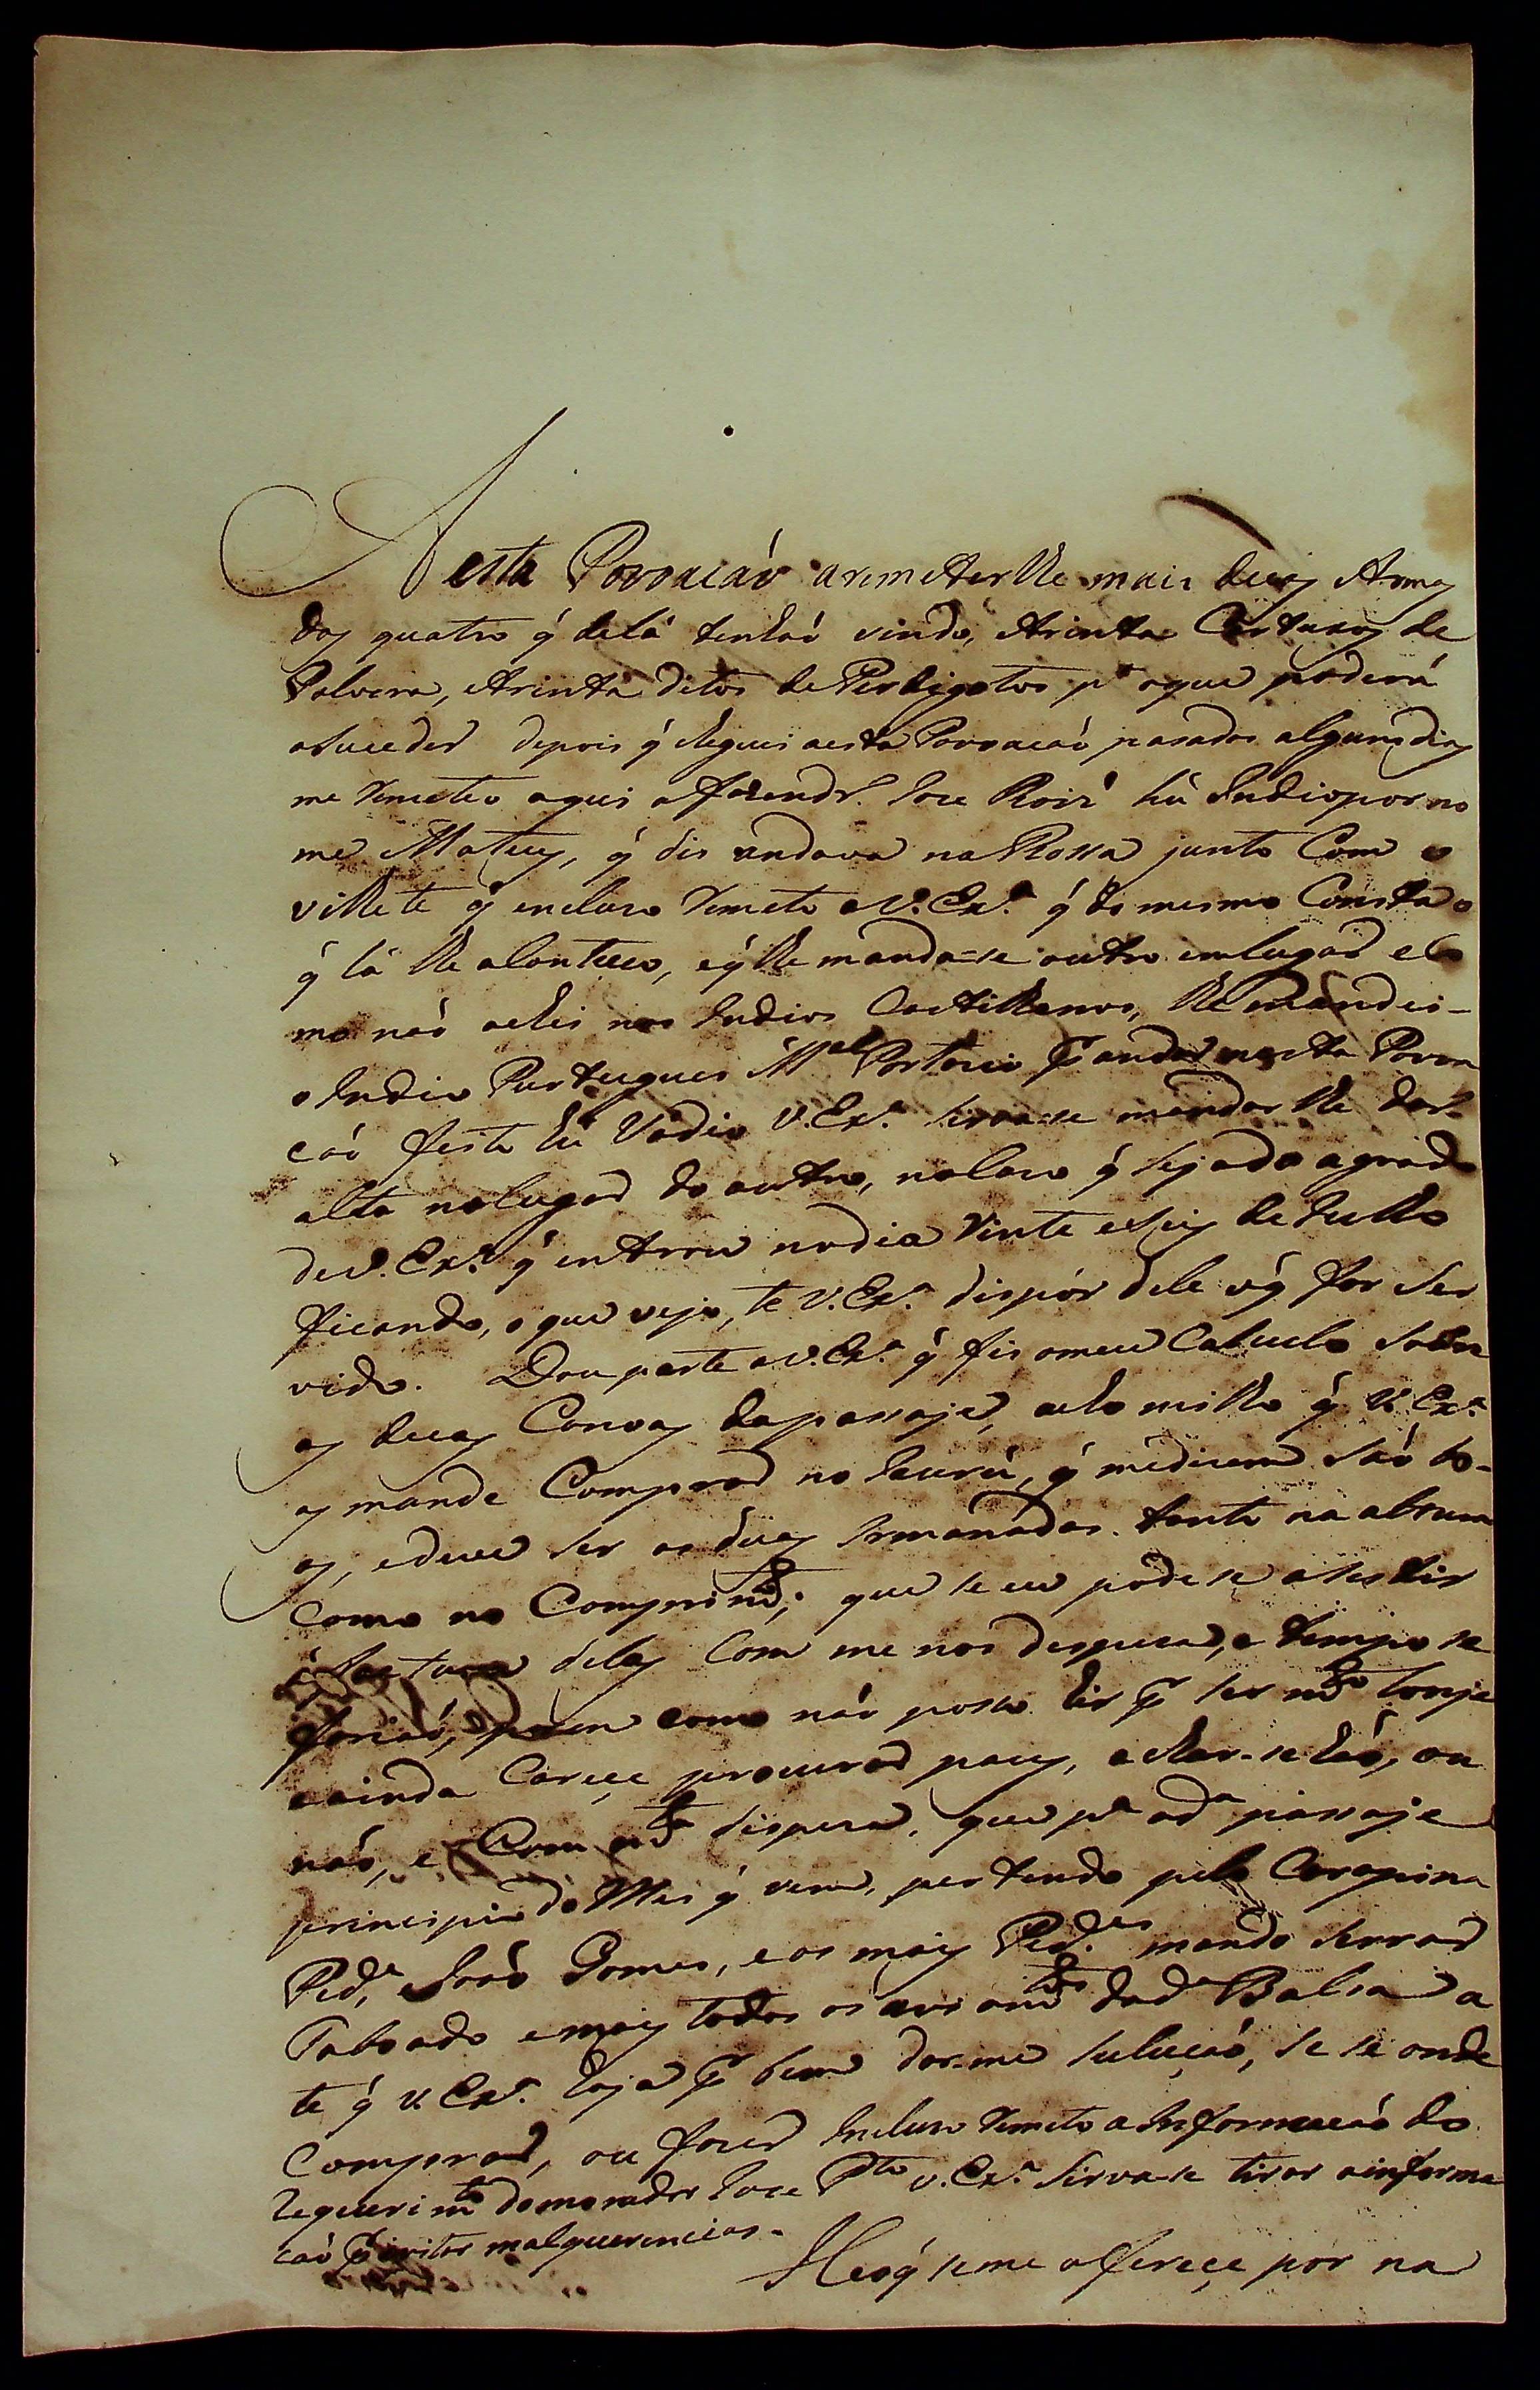 A esta Povoacaó aremeterlhe mais duas Armas
das quatro q̃ delá tenhaó vindo, etrinta Cartuxos de
Polvora, etrinta ditos de Perdigotos pª oque poderá
asuceder depois q̃ chegui aesta Povoacaó pasados alguns dias
me remeteo aqui ofazendr. Joze Roiz' hú Indio por no
me Mateus, q̃ dis andava na Rossa junto Com o
vilhete q̃ encluzo remeto a V. Exª. q̃ do mesmo Consta o
q̃ lá lhe aconteceo, eq̃ lhe manda=se outro emlugar e Co
mo naó achei nos Indios Castilhanos, lhe mandei-
o Indio Purtugues Mel Portacio q̃ andar nesta Povoa
caó feito hú Vadio V. Exª. sirva=se mandarlhe dar
alta nolugar do outro, nolaco q̃ seja do agrado
de V. Exª. q̃ entrou nodia Vinte eseis de Julho
ficando, o que vejo, te V. Exª. dispór dele o q̃ for ser
vido. Dou parte a V. Exª. q̃ fis omeu Calculo sobre
as duas Canoas dapassaje, acho milhor q̃ V. Exª.
as mande Comprar no Jecurú, q̃ medicem saó bo-
as, edeve ser as duas Irmanadas. tanto na altura
Como no Comprimto; que se eu pode se asestir
á factura delas Com me nos despeza, e tempo se
fariaó, porem como naó posso hir p̃ ser mto lonje
eainda Carece procurar paus, achar-se haó, ou
naó, e Com mta dispeza, que pª adª passaje
principio do Mes q̃ vem, pertendo pelo Carapina
Pedᵉ Joaó Gomes, eos mais Pedᵉˢ mando serrar
Taboado emais todos os aviamtos dadª Balsa a
te q̃ V. Exª. haja p̃ bem dar-me suluçaó, se se onde
Comprar, ou fazer Incluzo remeto a Informacaó do
requerimto domorador Joze Pto V. Exª. sirva-se tirar ainforma
caó p̃ ivitar malquerencias.
He oq̃ seme oferece por na